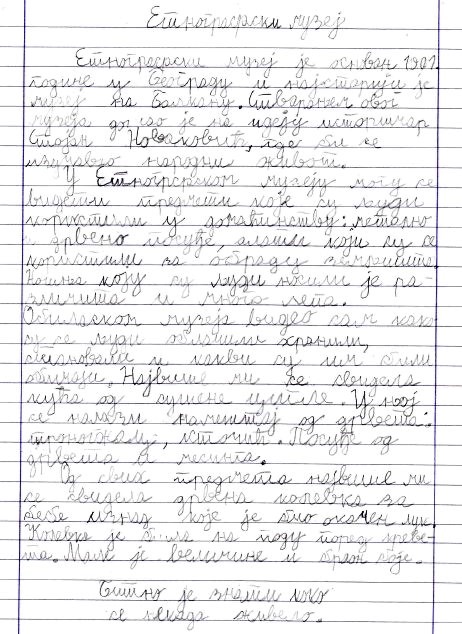 Етнографски музеј
Етнографски музеј је основан 1901.
године у Београду и најстарији је
музеј на Балкану. Стварањем овог
музеја дошао је на идеју историчар
Стојан Новаковић, где би се
изучавао народни живот.
У Етнографском музеју могу се
видети предмети које су људи
користили у домаћинству: метално
и дрвено посуђе, алати који су се
користили за обраду земљишта.
Ношња коју су људи носили је ра-
зличита и много лепа.
Обиласком музеја видео сам како
су се људи облачили, хранили,
становали и какви су им били
обичаји. Највише ми се свидела
кућа од сушене цигле. У њој
се налази намештај од дрвета:
троношци, сточић. Посуђе од
дрвета и месинга.
Од свих предмета највише ми
се свидела дрвена колевка за
бебе изнад које је био окачен лук.
Колевка је била на поду поред креве-
та. Мале је величине и браон боје.
Битно је знати како
се некада живело.